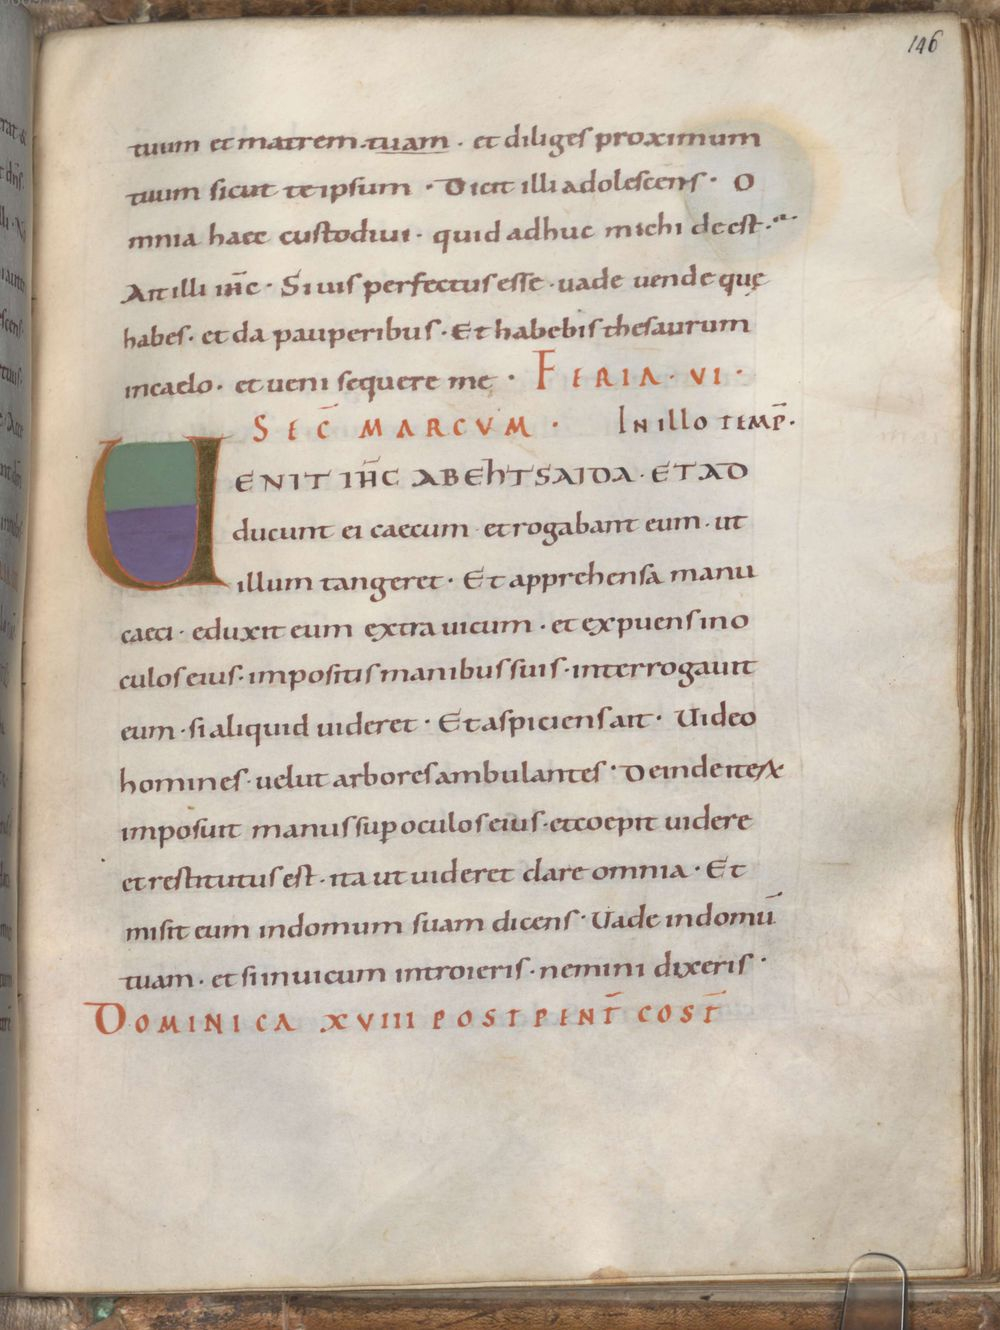 146
tuum et matrem tuam · et diliges proximum
tuum sicut te ipsum · Dicit illi adolescens · O
mnia haec custodiui · quid adhuc michi deest ·
Ait illi ih̄c · Si uis perfectus esse · uade uende quę
habes · et da pauperibus · Et habebis thesaurum
in caelo · et ueni sequere me · FERIA · VI ·
SEC̄ MARCVM · In illo temp̄ ·
UENIT IH̄C A BEhTSAIDA · ET AD
ducunt ei caecum · et rogabant eum · ut
illum tangeret · Et apprehensa manu
caeci · eduxit eum extra uicum · et expuens in o
culos eius · impositis manibus suis · interrogauit
eum · si aliquid uideret · Et aspiciens ait · Uideo
homines · uelut arbores ambulantes · Deinde iter
imposuit manus sup̄ oculos eius · et coepit uidere
et restitutus est · ita ut uideret clare omnia · Et
misit eum in domum suam dicens · Uade in domū
tuam · et si in uicum introieris · nemini dixeris ·
DOMINICA XVIII POST PENT̄ COST̄